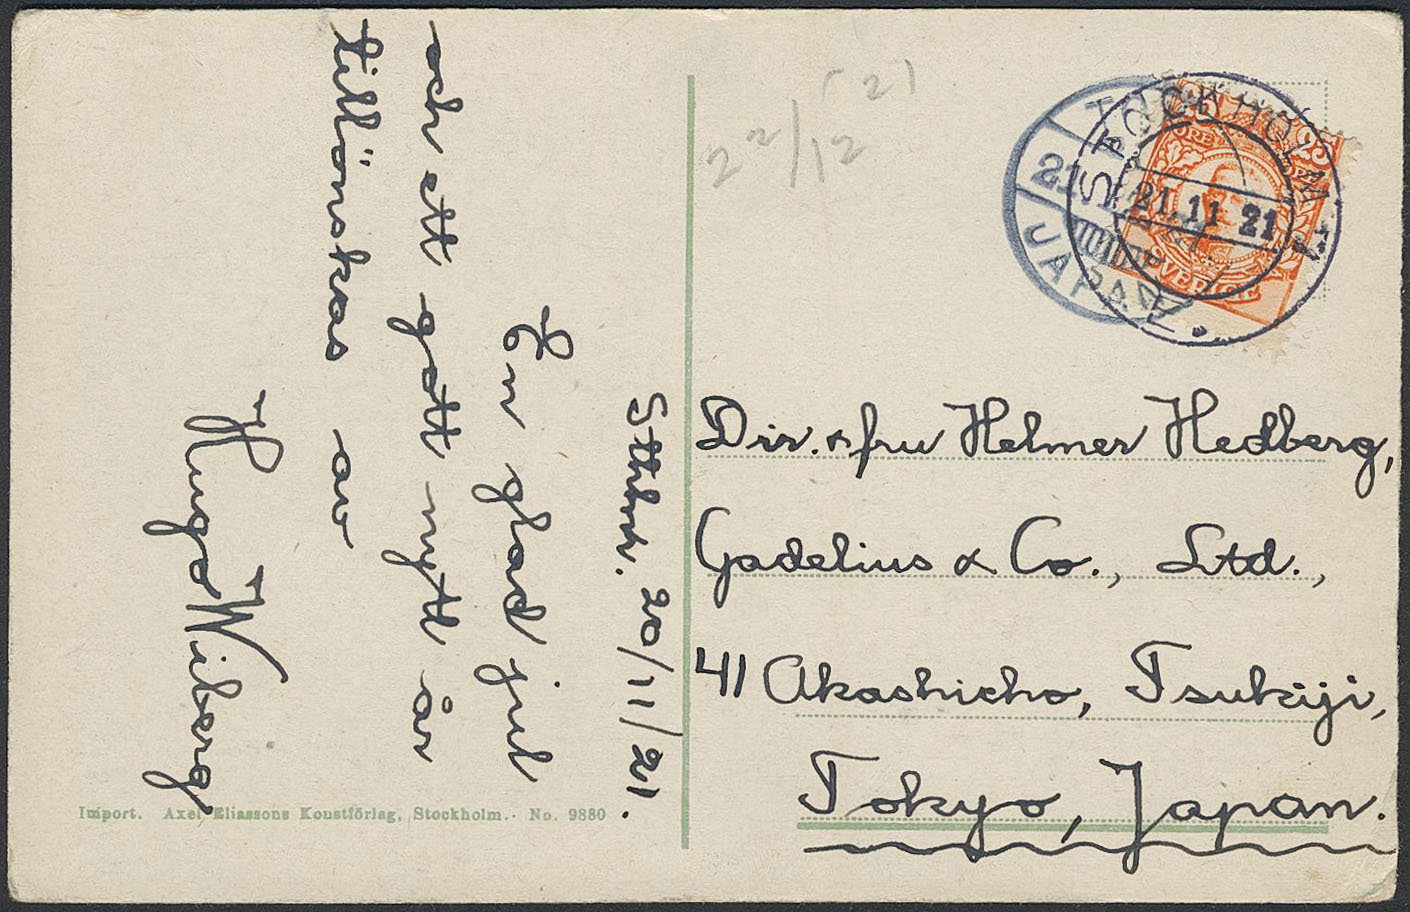 Sthlm. 20/11/21.
En glad jul
och ett gott nytt år
tillönskas av
Hugo Wiberg
Import. Axel Eliassons Konstförlag, Stockholm. No. 9880
22/12 21
25 25
ÖRE ÖRE
SVERIGE
STOCKHOLM 1
21.11 21
21.
JAPAN
Dir. & fru Helmer Hedberg,
Gadelius & Co., Ltd.,
41 Akashicho, Tsukiji,
Tokyo, Japan.